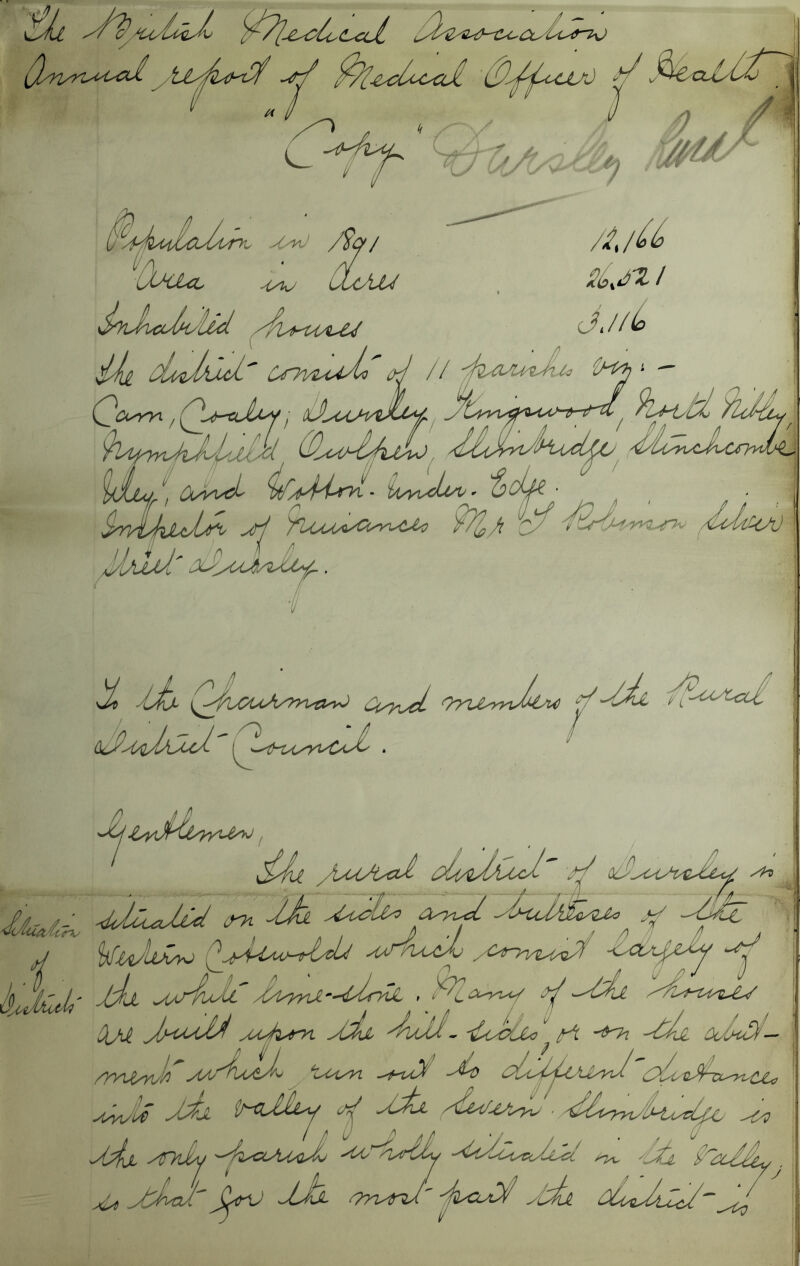 The British Medical Association
Annual report of Medical Officer of Health.
"Copy" Dursley Rural
Population in 1891 12,166
Area in Acres 26,521
Inhabited houses 3,116
The district consists of 11 parishes viz: -
Cam, Coaley, Dursley, Kingswood, North Nibley,
Nymphfield, Owlpen, Slimbridge, Stinchcombe
Uley, and Wotton-under-Edge.
Inspector of Nuisances Mr T Robinson Silver
Street Dursley.
To the Chairman and members of the Rural
District Council.
Gentlemen,
The rural district of Dursley is
Situation of Districts
situated on the sides and butresses of the
Western Cotswolds which consist largely of
the white lime-stone. Many of the houses
are built upon the hill-sides, or on the abut-
ments which run out to different distances
into the valley of the Severn. Slimbridge is
the only parish wholly situated in the Valley,
so that for the most part the district is